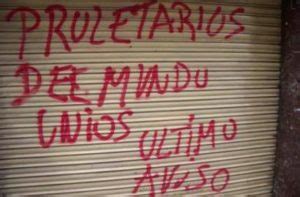 PROLETARIOS
DEL MUNDO
UNIOS
ULTIMO
AVISO